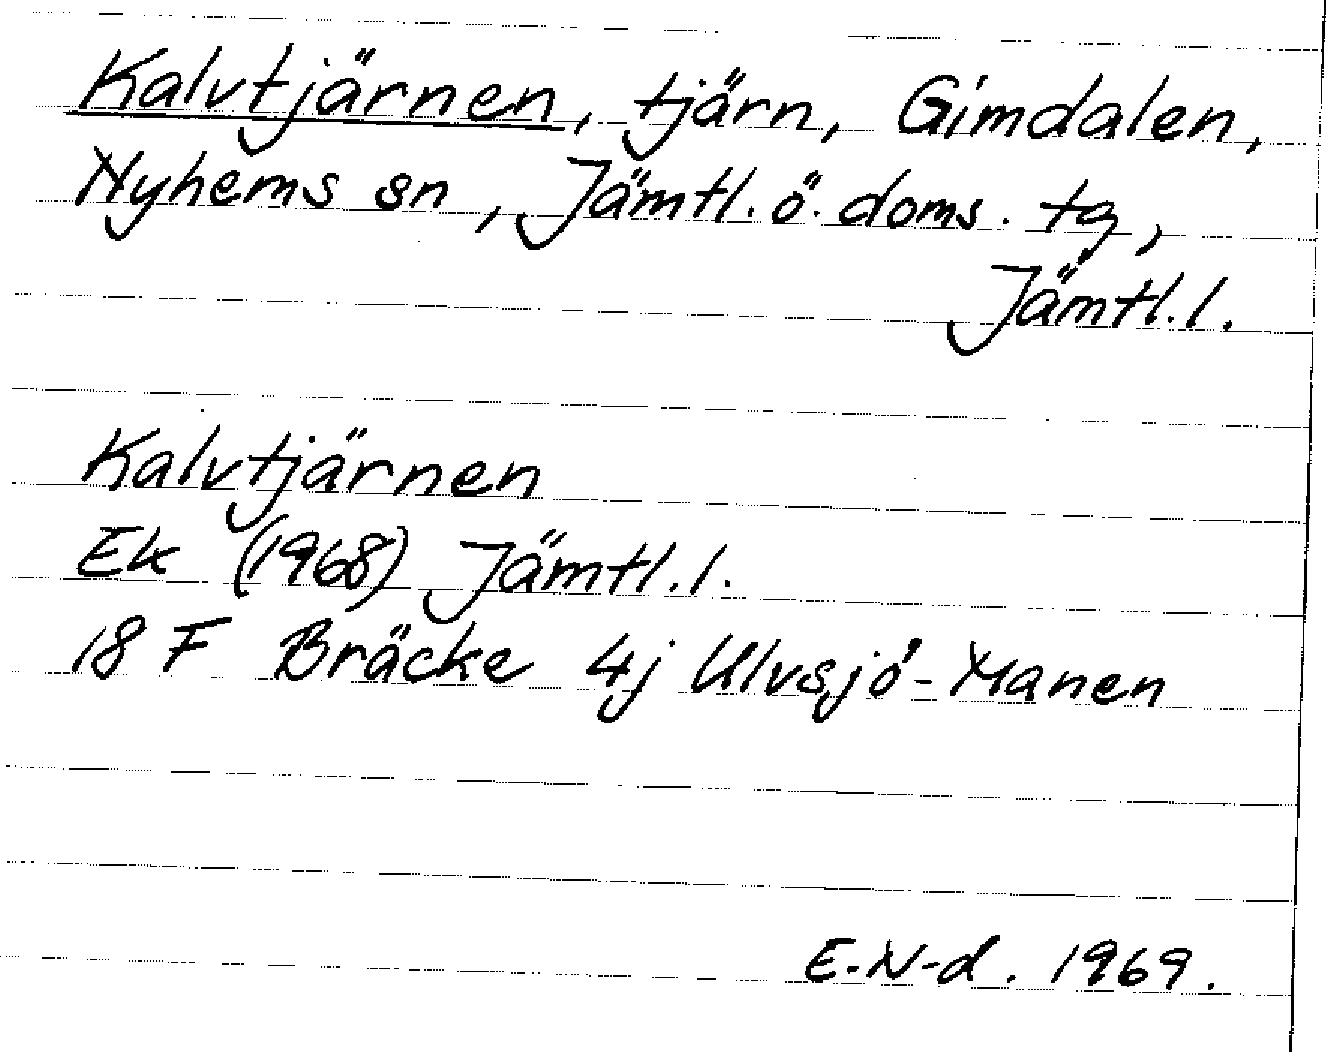 Kalvtjärnen, tjärn, Gimdalen,
Nyhems sn, Jämtl. ö. doms. tg,
Jämtl. l.
Kalvtjärnen
Ek (1968) Jämtl. l.
18 F Bräcke 4j Ulvsjö-Manen
E. N-d. 1969.